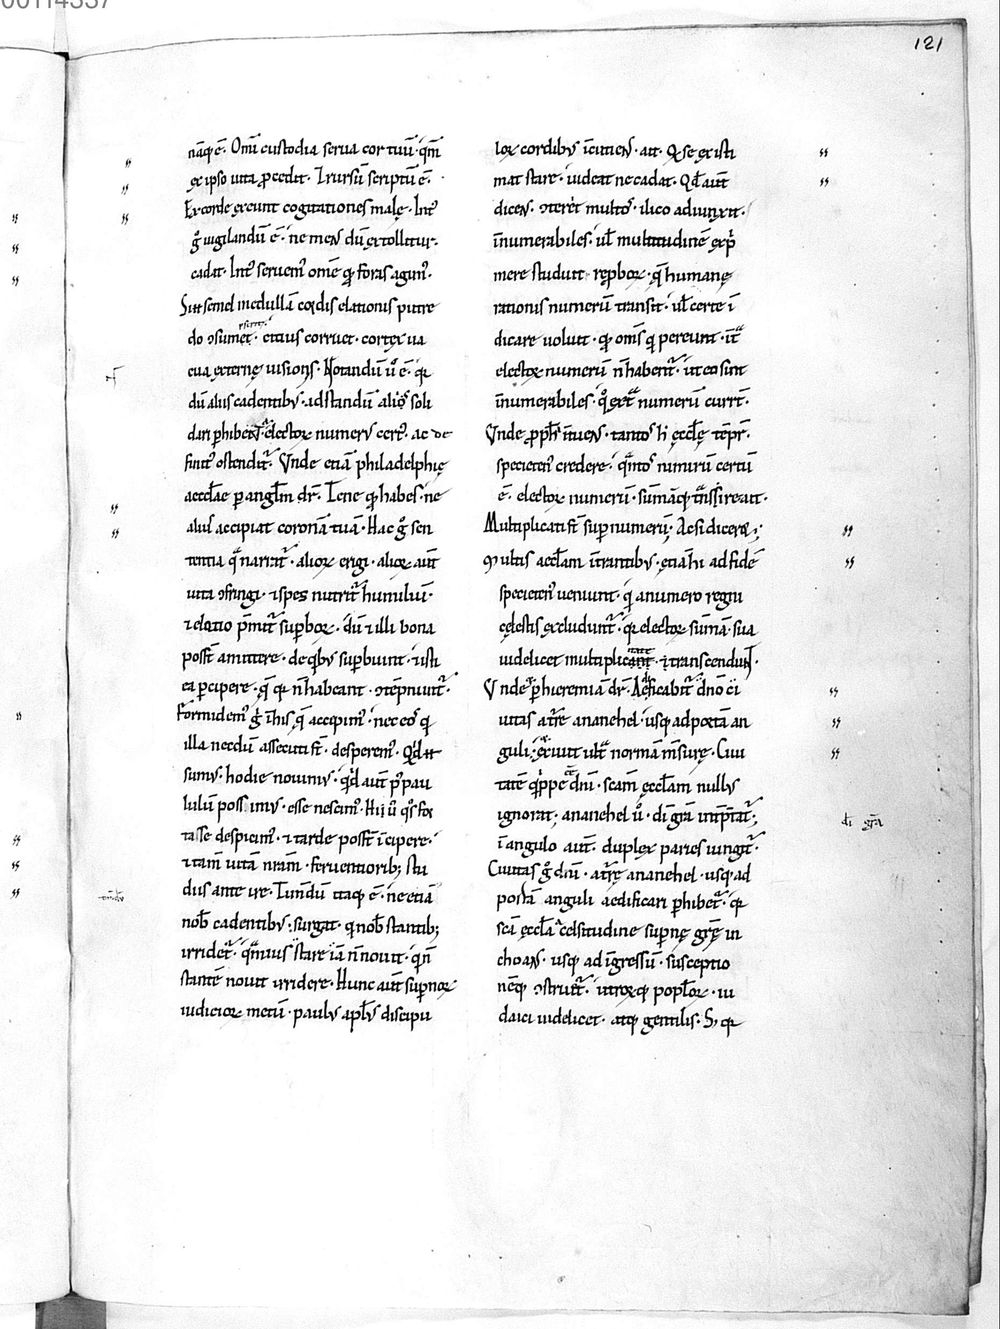 00114337
121
nāq; ē. Omī custodia serua cor tuū · qm̄
ex ipso uita pcedit. Irursū scriptū ē.
Ex corde exeunt cogitationes malę. Int̄
g̊ uigilandū ē · ne mens dū extollitur ·
cadat. Int̄ seruem̄ om̄e qđ foras agim̄.
Si ut semel medullā cordis elationis putre
do ↄsumet · citius corruet · cortex ua
cua externę uisionis. Notandū ů ē · qđ
dū aliis cadentibꝰ · adstandū alios soli
dari phibet · electoꝝ numerꝰ certꝰ · ac de
finitꝰ ostendit̄. Vnde etiā philadelphię
aeccłae p angłm dr̄. Tene qđ habes · ne
aliꝰ accipiat coronā tuā. Hac g̊ sen
tentia qā narrat̄ · alioꝝ erigi · alioꝝ aut̄
uita ↄfringi · ⁊ spes nutrit̄ humiliū ·
⁊ elatio p̄mit̄ supboꝝ · dū ⁊ illi bona
poss̄t amittere · de qbꝰ supbiunt · ⁊ isti
ea pcipere · q̄ qđ n̄ habeant · ↄtēpnunt̄ ·
Formidem̄ g̊ īhis q̄ accepim̄ · nec eos qđ
illa necdū assecuti st̄ · desperem̄. Qđ
sumꝰ · hodie nouimꝰ · qđ aut̄ p̄ pau
lulū possimꝰ · esse nescim̄. Hii ů qos for
tasse despicim̄ · ⁊ tarde poss̄t īcipere ·
⁊ tam̄ uitā nrām · feruentiorib; stu
diis ante ire. Timdū itaq; ē · ne etiā
nob̄ cadentibꝰ · surgat · q nob̄ stantib;
irridet̄ · qmuis stare iā n̄ nouit · q n̄
stantē nouit irridere. Hunc aut̄ supnoꝝ
iudicioꝝ metū · paulꝰ aplꝰ discipu
loꝝ cordibꝰ īcutiens · ait. Q se existi
mat stare · uideat ne cadat. Qđ aut̄
dicens · ↄteret multos · ilico adiunxit ·
īnumerabiles · uł multitudinē exp̄
mere studuit reproboꝝ · q̄ humanę
rationis numerū transit · uł certe ī
dicare uoluit · qđ om̄s q pereunt · īt̄
electoꝝ numerū n̄ habent̄ · ut eo sint
īnumerabiles · qo ext̄ numerū curr̄t ·
Vnde ꝓph̄ ītuens · tantos h̄ ęccłę tēpr̄ ·
specietenꝰ credere · qantos nimirū certū
ē · electoꝝ numerū · sūmāq; t̄nssire ait ·
Multiplicati st̄ sup numerū; Ac si diceret;
Multis aeccłam īt̄rantibꝰ · etiā hi ad fidē
specietenꝰ ueniunt · q a numero regni
cęlestis excludunt̄ · qđ electoꝝ sūmā sua
uidelicet multiplicatione · transcendunt ·
Vnde p hieremiā dr̄. Aedificabit̄ dn̄o ci
uitas a t̄re ananehel · usq; ad portā an
guli · ⁊ exiuit ult̄ normā m̄surę. Ciui
tatē qippe dn̄i · scam ęccłam nullꝰ
ignorat; ananehel u̇ · dī gr̄a int̄p̄tat̄;
in angulo aut̄ · duplex paries iungit̄ ·
Ciuitas g̊ dn̄i · a t̄rę ananehel · usq; ad
portā anguli aedificari phibet̄ · qđ
scā ęccła a celsitudine supnę gr̄ę in
choans · usq; ad īgressū · susceptio
nēq; ↄstruit̄ · utroꝝq; popłoꝝ · iu
daici uidelicet · atq; gentilis. S; qđ
dī gr̄a